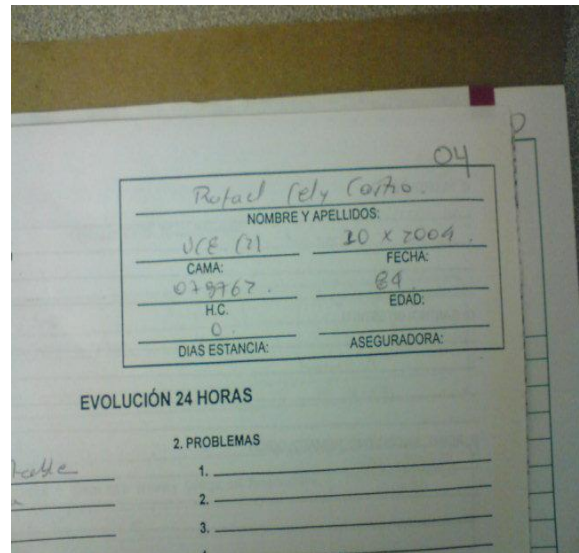 04
Rafael Cely Castro.
NOMBRE Y APELLIDOS:
UCE 10 X 2009.
CAMA: FECHA:
079767. 84
H.C. EDAD:
0.
DIAS ESTANCIA: ASEGURADORA:
EVOLUCIÓN 24 HORAS
2. PROBLEMAS
1.
2.
3.